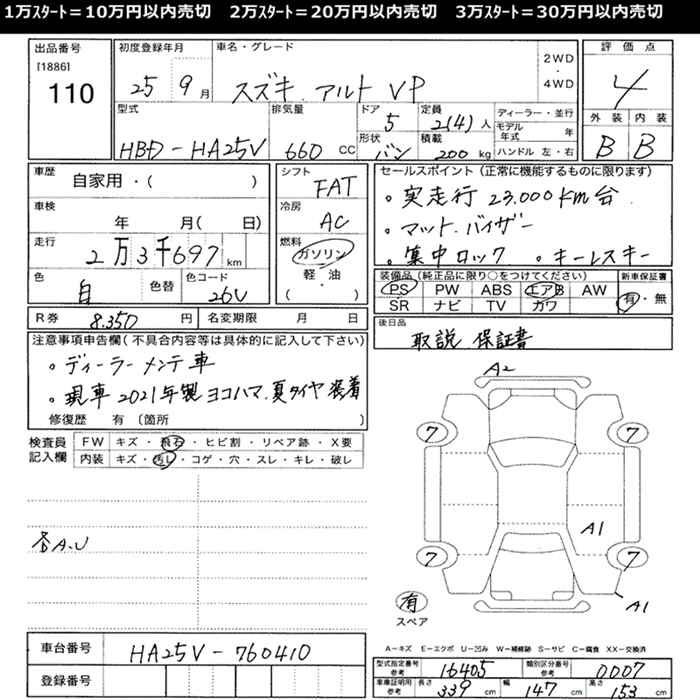 1万スタート=10万円以内売切　2万スタート=20万円以内売切　3万スタート=30万円以内売切
出品番号
[1886]
110
初度登録年月
25 9月
車名・グレード
スズキ.アルト VP
2WD・4WD
評価点
4
外装 内装
B B
型式
HBD-HA25V
排気量
660 CC
ドア
5
形状
バン
定員
2(4)人
積載
200 kg
ディーラー・並行
モデル年式 年
ハンドル 左・右
車歴
自家用・( )
車検
年 月( 日)
走行
2万3千697 km
色
白
色替
色コード
26U
シフト
FAT
冷房
AC
燃料
ガソリン
軽・油
( )
セールスポイント(正常に機能するものに限ります)
。実走行 23.000km台.
。マット.バイザー
。集中ロック 。キーレスキー
装備品(純正品に限り○をつけてください)
PS PW ABS エアB AW
SR ナビ TV カワ
新車保証書
有・無
後日品
取説 保証書
R券 8.350 円 名変期限 月 日
注意事項申告欄(不具合内容等は具体的に記入して下さい)
。ディーラーメンテ車
。現車2021年製ヨコハマ.夏タイヤ装着
修復歴 有(箇所 )
検査員記入欄
FW キズ・飛石・ヒビ割・リペア跡・X要
内装 キズ・汚レ・コゲ・穴・スレ・キレ・破レ
各A.U
A2
7
7
A1
7
7
A1
有
スペア
車台番号 HA25V-760410
登録番号
A-キズ E-エクボ U-凹み W-補修跡 S-サビ C-腐食 XX-交換済
型式指定番号 参考 16405 類別区分番号 参考 0007
車庫証明用 参考 長さ 339 cm 幅 147 cm 高さ 153 cm